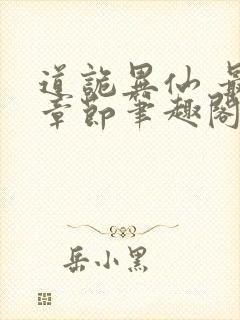 道詭異仙 最
章節筆趣閣
岳小黑